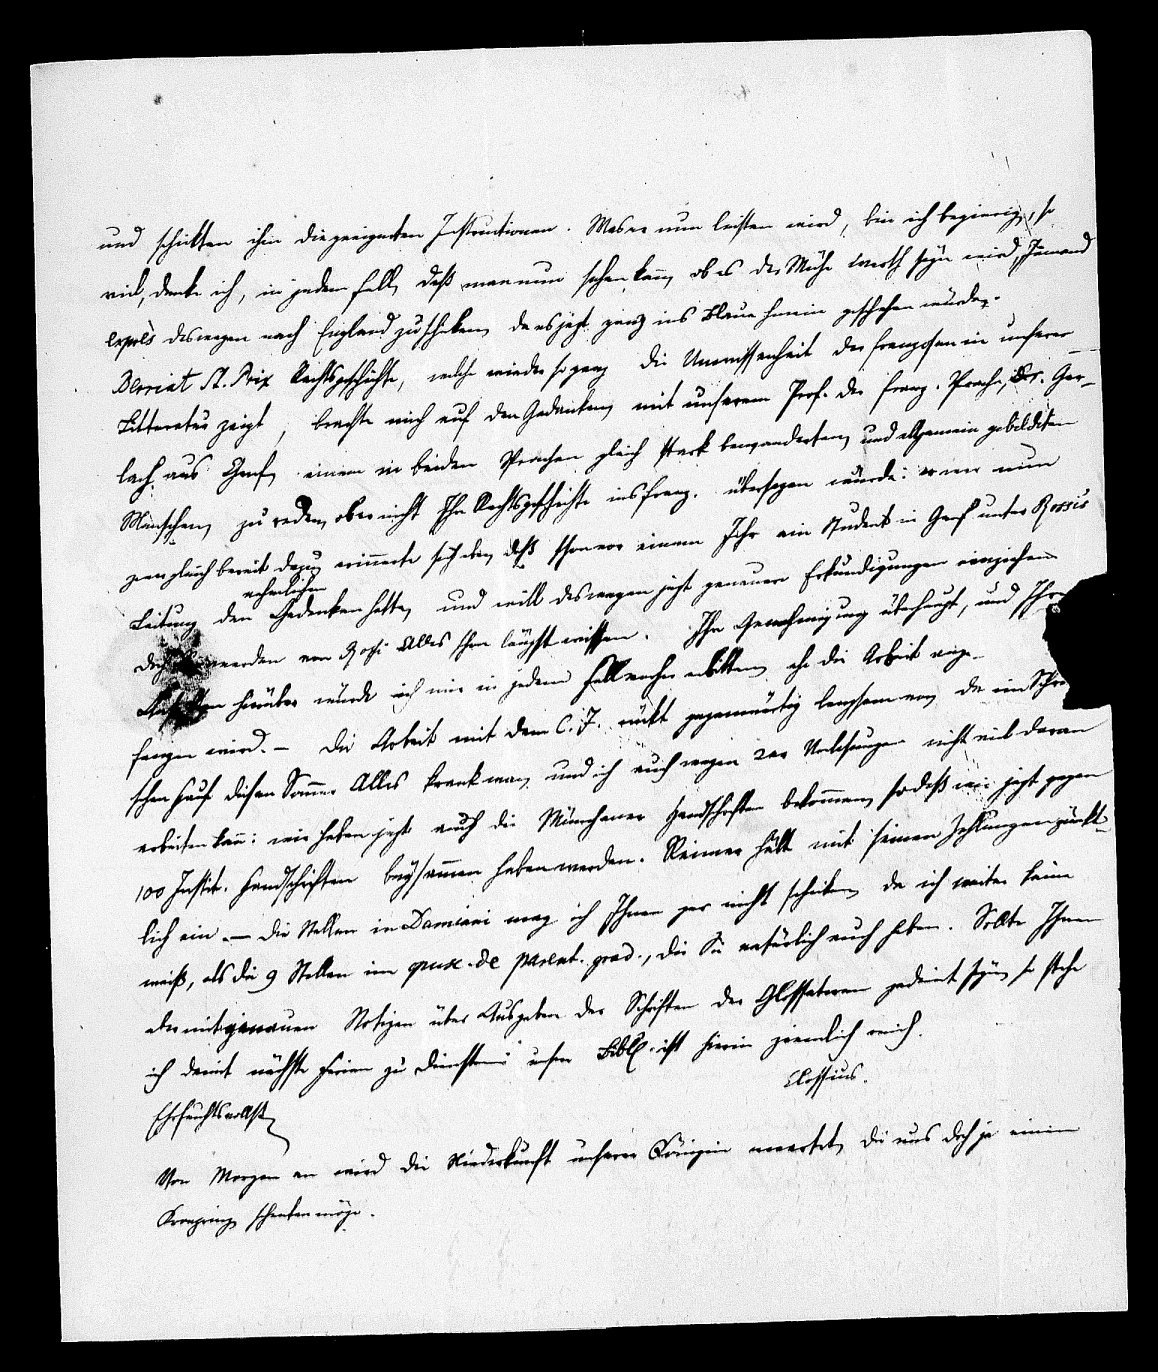 und schickten ihm die geeigneten Instructionen. Was er nun leisten wird, bin ich begierig, so
viel, denke ich, in jedem Fall, daß man nun sehen kann, ob es der Mühe werth seyn wird, Jemand
exprès deswegen nach England zu schiken, da es jezt ganz ins Blaue hinein geschehen würde.
Berriat St. Prix Rechtsgeschichte, welche wieder so ganz die Unwissenheit der Franzosen in unserer
Litteratur zeigt, brachte mich auf den Gedanken, mit unserem Prof. der franz. Sprache, Dr. Ger-
lach aus Genf, einem in beiden Sprachen gleich stark bewanderten, und allgemein gebildeten
Menschen, zu reden, ob er nicht Ihre Rechtsgeschichte ins franz. übersezen würde: er war nun
zwar gleich bereit dazu, erinnerte sich aber, daß schon vor einem Jahr ein Student in Genf unter Rossis
Leitung den nehmlichen Gedanken hatte, und will deswegen jezt genauere Erkundigungen einziehen
doch werden von Rossi Alles schon längst wissen. Ihre Genehmigung überhaupt, und Ihre
hierüber würde ich mir in jedem Fall vorher erbitten, ehe die Arbeit ange-
fangen wird. – Die Arbeit mit dem C. J. rückt gegenwärtig langsam vor, da im
schen Hauß diesen Sommer Alles krank war, und ich auch wegen 2er Vorlesungen nicht viel daran
arbeiten kann: wir haben jezt auch die Münchener Handschriften bekommen, so daß wir jezt gegen
100 Instit. Handschriften beysammen haben werden. Reimer hält mit seinen Zahlungen pünkt-
lich ein. – Die Stellen in Damiani mag ich Ihnen gar nicht schicken, da ich weiter keine
weiß, als die 9 Stellen im opusc. de parent. grad., die Sie natürlich auch haben. Sollte Ihnen
aber mit genauen Notizen über Ausgaben der Schriften der Glossatoren gedient seyn, so stehe
ich damit nächste Ferien zu Diensten: unsere Bibl. ist hierin ziemlich reich.
Ehrfurchtsvollst
Clossius.
Von Morgen an wird die Niederkunft unserer Königin erwartet, die uns doch ja einen
Kronprinz schenken möge.